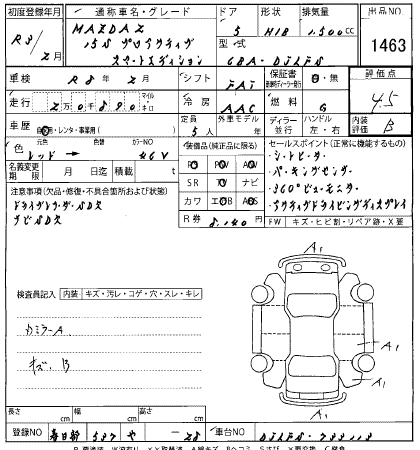 初度登録年月 通称車名・グレード ドア 形状 排気量 出品NO
R3/2月 MAZDA2 5 H/B 1,500cc 1463
15S プロアクティブ
スマートエディション
型式 6BA-DJLFS
車検 R8年2月 シフト FAT 保証書 有・無 評価点
走行 2万0890 マイル キロ 冷房 AAC 燃料 G 4.5
車歴 自家・レンタ・事業用( ) 定員 5人 外車モデル 年 ディーラー 並行 ハンドル 左・右 内装評価 B
色 元色 レッド → 色替 カラーNO 46V 装備品(純正品に限る) セールスポイント(正常に機能するもの)
名義変更期限 月 日迄 積載 t PS PW AW
注意事項(欠品・修復・不具合箇所および状態) SR TV ナビ
カワ エアB ABS
R券 8,140円
シートヒーター
パーキングセンサー
360°ビューモニター
アクティブドライビングディスプレイ
ドライブレコーダーSDス
ナビSDス
FW キズ・ヒビ割・リペア跡・X要
検査員記入 内装 キズ・汚レ・コゲ・穴・スレ・キレ
カミラーA
キズ、B
A1
A1
A1
A1
長さ cm 幅 cm 高さ cm
登録NO 春日部 537 や 車台NO DJLFS-